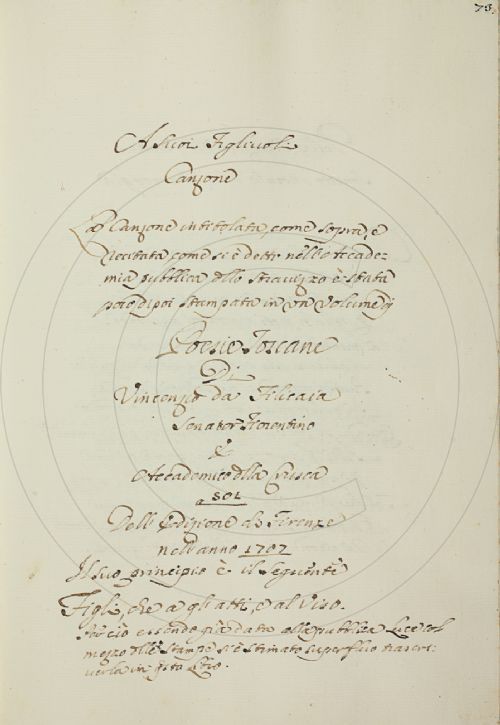 75.
A Suoi Figliuoli
Canzone
La Canzone intitolata, come sopra, e
recitata come si è detto nell'Accade=
mia pubblica dello Stravizzo è stata
poi dipoi stampata in un Volume di
Poesie Toscane
Di
Vincenzo da Filicaia
Senator Fiorentino
e
Accademico della Crusca
a 501
Dell'Edizione di Firenze
nell'anno 1707
Il suo principio è il seguente
Figli, che a gli atti, e al Viso.
Per ciò essendo già data alla pubblica Luce col
mezzo delle Stampe si è stimato superfluo trascri=
verla in questo Libro.